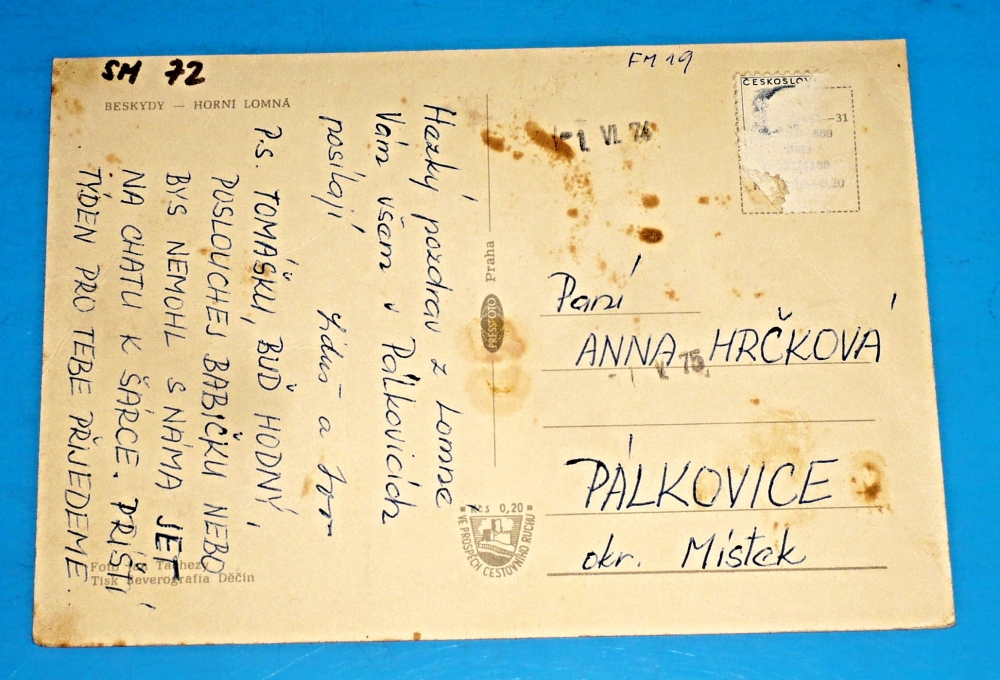 SM 72
FM 19
BESKYDY — HORNÍ LOMNÁ
Hezký pozdrav z Lomné
Vám všem v Pálkovicích
posílají
Liduš a
P.S. TOMÁŠKU, BUĎ HODNÝ,
POSLOUCHEJ BABIČKU NEBO
BYS NEMOHL S NÁMA JET
NA CHATU K ŠÁRCE. PŘÍŠTÍ
TÝDEN PRO TEBE PŘIJEDEME.
Foto
Tisk Severografia Děčín
PRESSFOTO Praha
Kčs 0,20
VE PROSPĚCH CESTOVNÍHO RUCHU
ČESKOSLOV
-1. VI. 74
Paní
ANNA HRČKOVÁ
75
PÁLKOVICE
okr. Místek